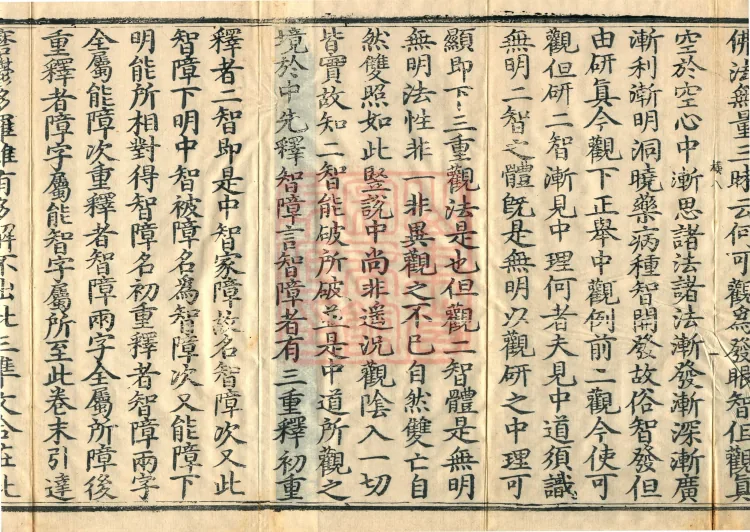 佛法無量三昧云何可觀為發眼智但觀眞
空於空心中漸思諸法諸法漸發漸深漸廣
漸利漸明洞曉藥病種智開發故俗智發但
由研眞今觀下正舉中觀例前二觀今使可
觀但研二智漸見中理何者夫見中道須識
無明二智之體旣是無明以觀研之中理可
顯即下三重觀法是也但觀二智體是無明
無明法性非一非異觀之不已自然雙亡自
然雙照如此豎說中尚非遥況觀陰入一切
皆實故知二智能破所破並是中道所觀之
境於中先釋智障言智障者有三重釋初重
釋者二智即是中智家障故名智障次又此
智障下明中智被障名為智障次又能障下
明能所相對得智障名初重釋者智障兩字
全屬能障次重釋者智障兩字全屬所障後
重釋者障字屬能智字屬所至此卷末引達
摩欝多羅雖有多解不出此三準文合在此